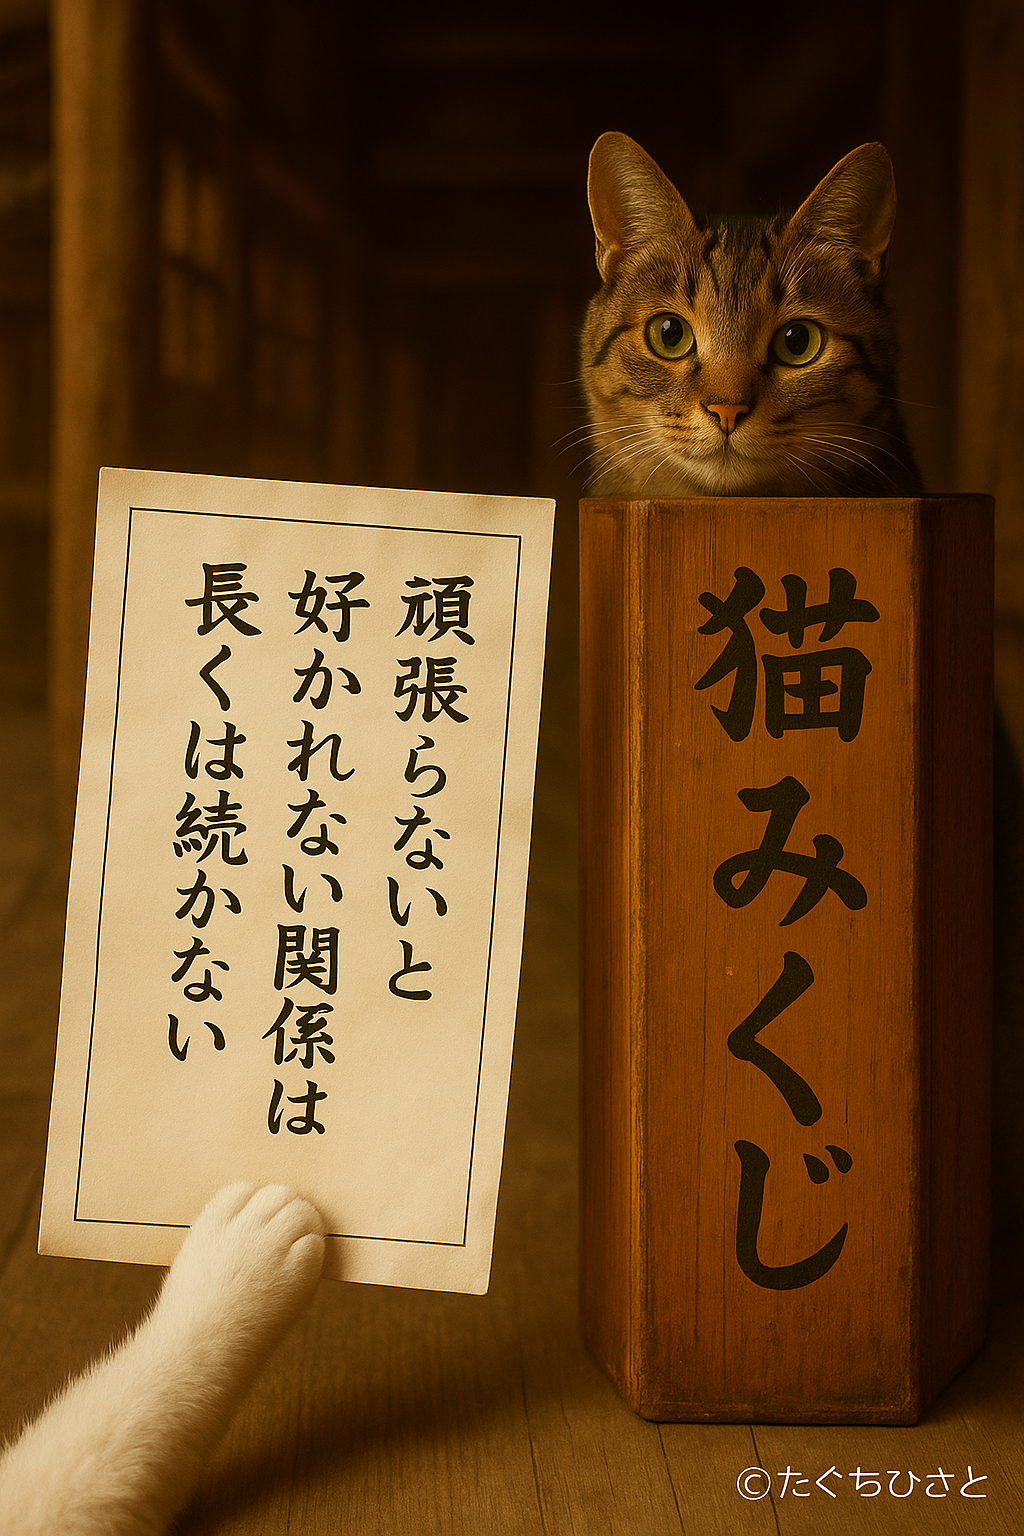 頑張らないと
好かれない関係は
長くは続かない
猫みくじ
©たぐちひさと